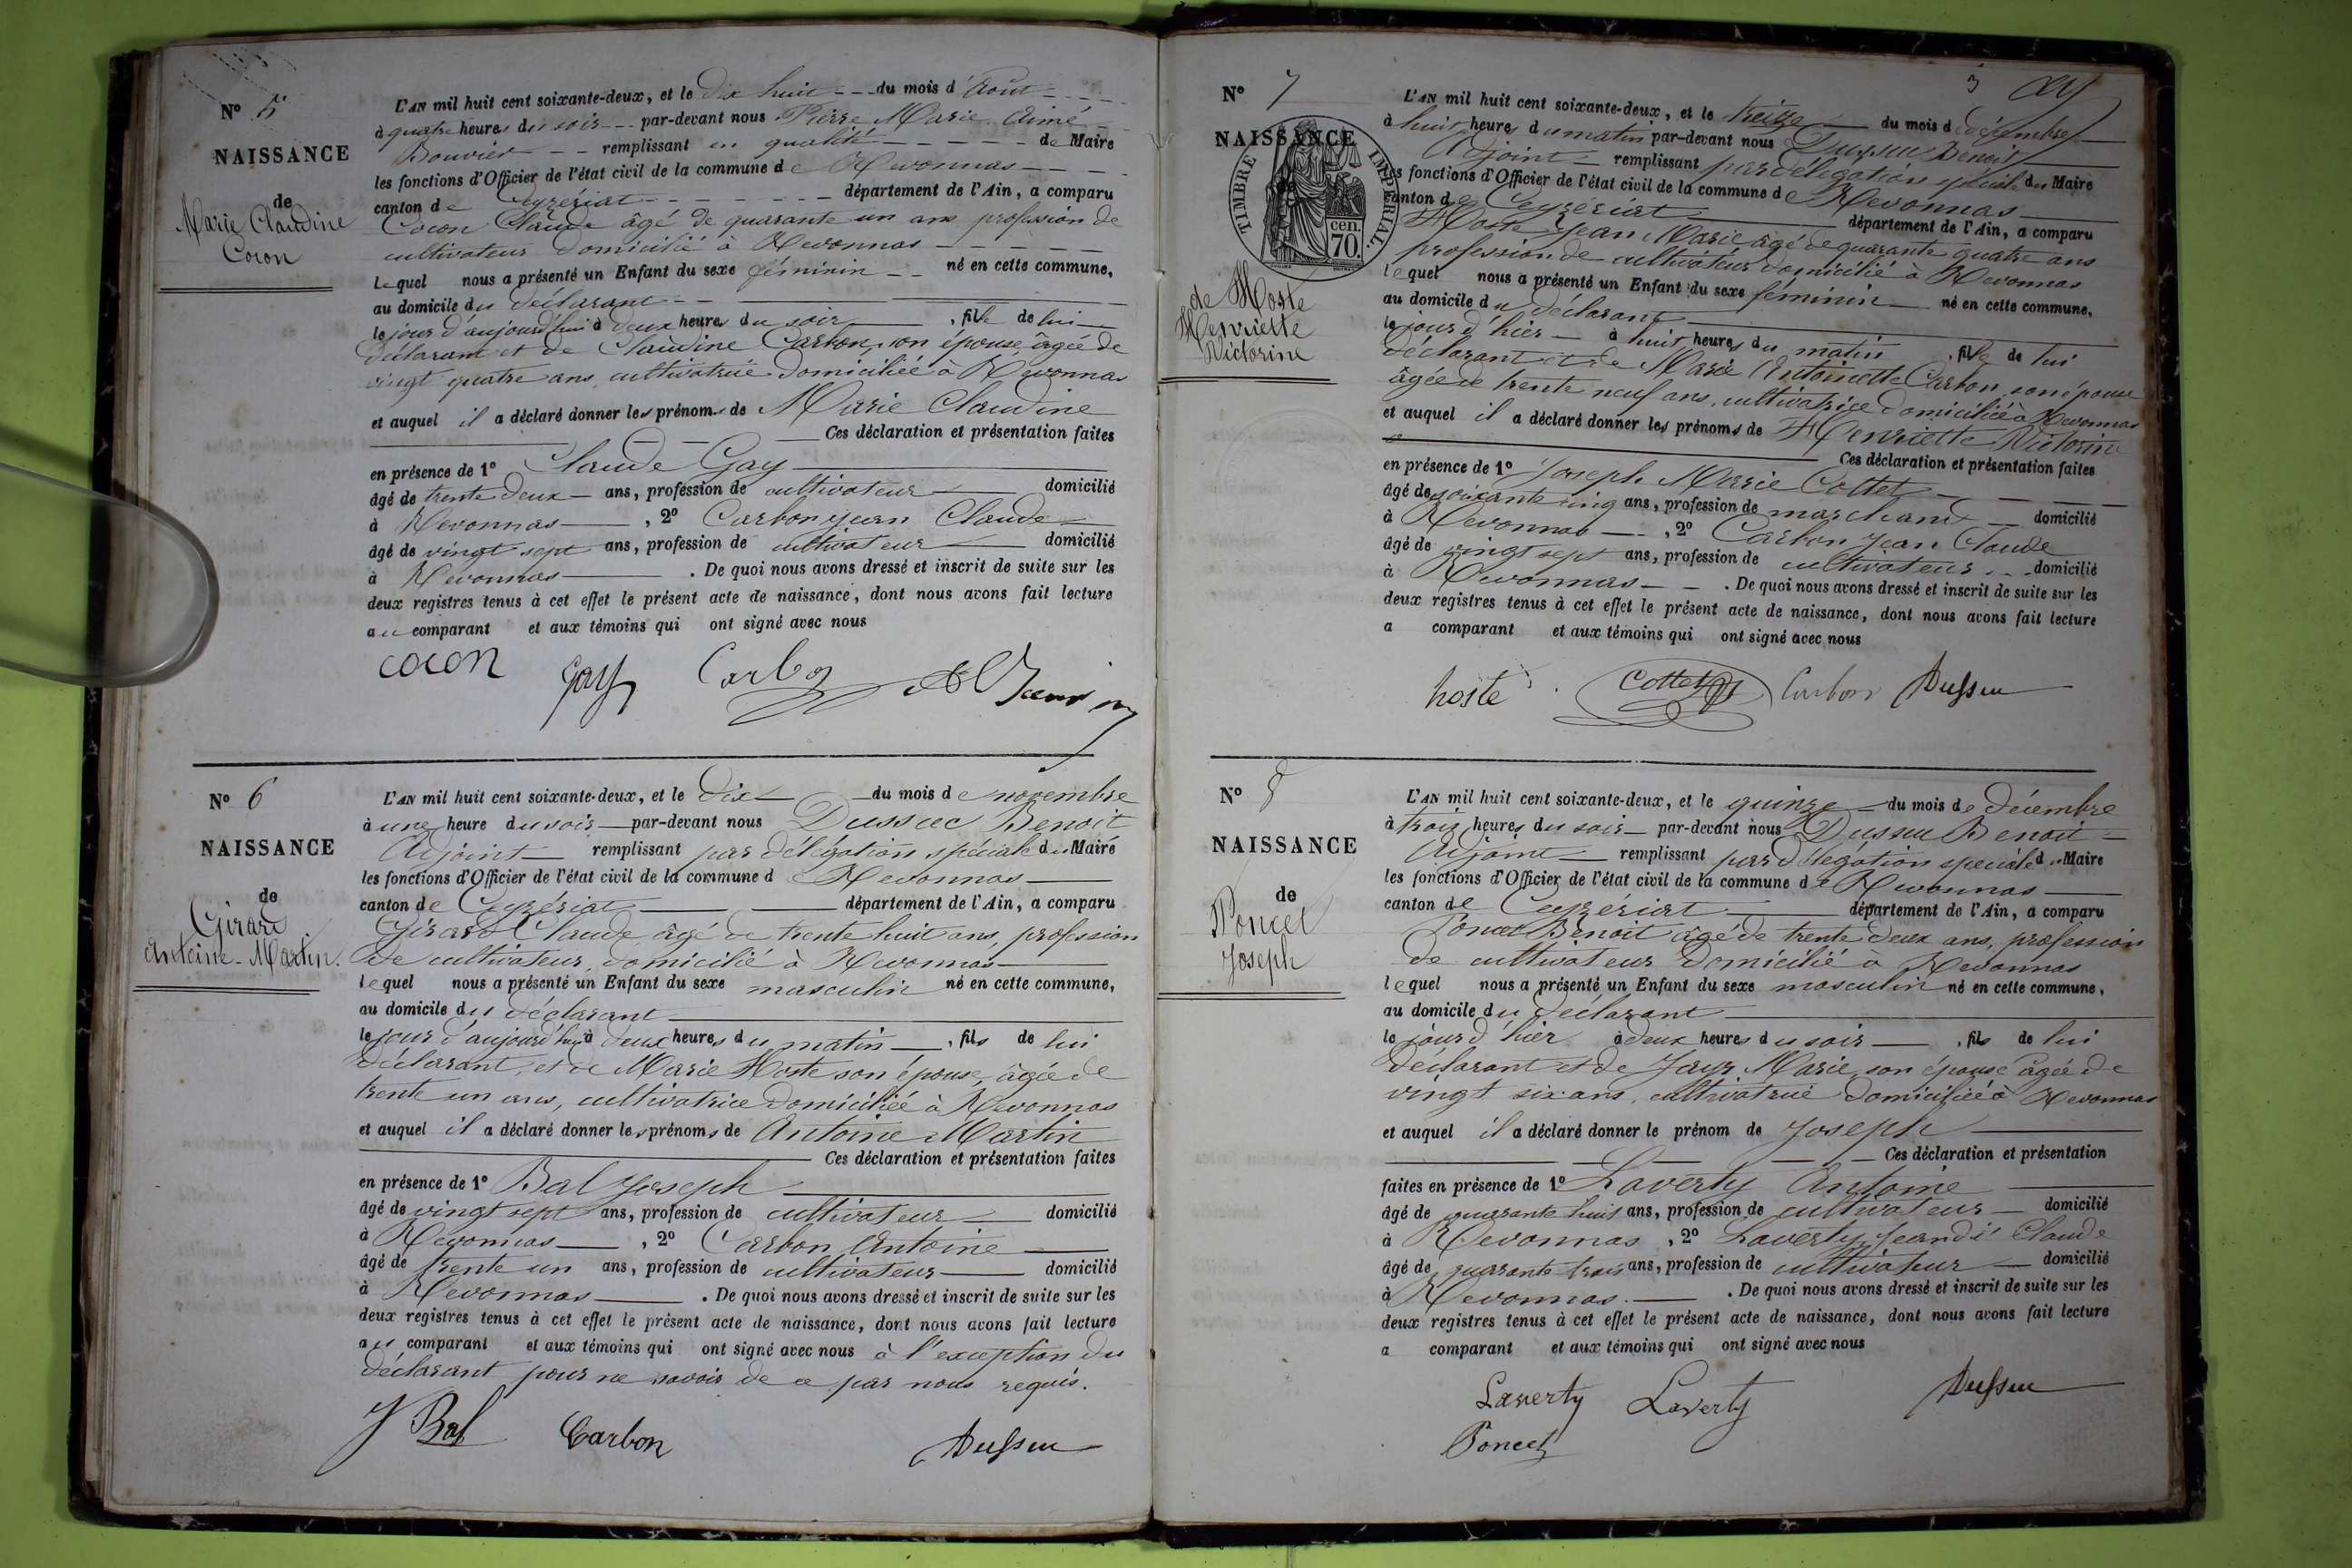 N° 5
NAISSANCE
de
Marie Claudine
Cocon
L'AN mil huit cent soixante-deux, et le dix huit du mois d'Août
à quatre heures du soir par-devant nous Pierre Marie Aimé
Bouvier remplissant en qualité de Maire
les fonctions d'Officier de l'état civil de la commune de Revonnas
canton de Ceyzériat département de l'Ain, a comparu
Cocon Claude âgé de quarante un ans profession de
cultivateur domicilié à Revonnas
lequel nous a présenté un Enfant du sexe féminin né en cette commune,
au domicile du déclarant
le jour d'aujourd'hui à deux heures du soir, fille de lui
déclarant et de Claudine Carbon, son épouse âgée de
vingt quatre ans, cultivatrice domiciliée à Revonnas
et auquel il a déclaré donner les prénoms de Marie Claudine
Ces déclaration et présentation faites
en présence de 1° Claude Gay
âgé de trente deux ans, profession de cultivateur domicilié
à Revonnas, 2° Carbon Jean Claude
âgé de vingt sept ans, profession de cultivateur domicilié
à Revonnas. De quoi nous avons dressé et inscrit de suite sur les
deux registres tenus à cet effet le présent acte de naissance, dont nous avons fait lecture
au comparant et aux témoins qui ont signé avec nous
cocon Gay Carbon
N° 6
NAISSANCE
de
Girard
Antoine-Martin.
L'AN mil huit cent soixante-deux, et le dix du mois de novembre
à une heure du soir par-devant nous Dussuc Benoit
Adjoint remplissant par délégation spéciale du Maire
les fonctions d'Officier de l'état civil de la commune d Revonnas
canton de Ceyzériat département de l'Ain, a comparu
Girard Claude âgé de trente huit ans, profession
de cultivateur, domicilié à Revonnas
lequel nous a présenté un Enfant du sexe masculin né en cette commune,
au domicile du déclarant
le jour d'aujourd'hui à deux heures du matin, fils de lui
déclarant, et de Marie Hoste son épouse, âgée de
trente un ans, cultivatrice domiciliée à Revonnas
et auquel il a déclaré donner les prénoms de Antoine Martin
Ces déclaration et présentation faites
en présence de 1° Bal Joseph
âgé de vingt sept ans, profession de cultivateur domicilié
à Revonnas, 2° Carbon Antoine
âgé de trente un ans, profession de cultivateur domicilié
à Revonnas. De quoi nous avons dressé et inscrit de suite sur les
deux registres tenus à cet effet le présent acte de naissance, dont nous avons fait lecture
au comparant et aux témoins qui ont signé avec nous à l'exception du
déclarant pour ne savoir de ce par nous requis.
J Bal Carbon Dussuc
3
N° 7
NAISSANCE
TIMBRE IMPERIAL.
cen.
70.
de Hoste
Henriette
Victorine
L'AN mil huit cent soixante-deux, et le treize du mois de décembre
à huit heures du matin par-devant nous Dussuc Benoit
Adjoint remplissant par délégation spéciale du Maire
les fonctions d'Officier de l'état civil de la commune de Revonnas
canton de Ceyzériat département de l'Ain, a comparu
Hoste Jean Marie âgé de quarante quatre ans
profession de cultivateur domicilié à Revonnas
lequel nous a présenté un Enfant du sexe féminin né en cette commune,
au domicile du déclarant
le jour d'hier à huit heures du matin, fille de lui
déclarant et de Marie Antoinette Carbon, son épouse
âgée de trente neuf ans, cultivatrice domiciliée à Revonnas
et auquel il a déclaré donner les prénoms de Henriette Victorine
Ces déclaration et présentation faites
en présence de 1° Joseph Marie Cottet
âgé de soixante cinq ans, profession de marchand domicilié
à Revonnas, 2° Carbon Jean Claude
âgé de vingt sept ans, profession de cultivateur domicilié
à Revonnas. De quoi nous avons dressé et inscrit de suite sur les
deux registres tenus à cet effet le présent acte de naissance, dont nous avons fait lecture
a comparant et aux témoins qui ont signé avec nous
hoste Cottet Carbon Dussuc
N° 8
NAISSANCE
de
Poncet
Joseph
L'AN mil huit cent soixante-deux, et le quinze du mois de décembre
à trois heures du soir par-devant nous Dussuc Benoit
Adjoint remplissant par délégation spéciale du Maire
les fonctions d'Officier de l'état civil de la commune de Revonnas
canton de Ceyzériat département de l'Ain, a comparu
Poncet Benoit âgé de trente deux ans, profession
de cultivateur domicilié à Revonnas
lequel nous a présenté un Enfant du sexe masculin né en cette commune,
au domicile du déclarant
le jour d'hier à deux heures du soir, fils de lui
déclarant et de Jayr Marie, son épouse âgée de
vingt six ans, cultivatrice domiciliée à Revonnas
et auquel il a déclaré donner le prénom de Joseph
Ces déclaration et présentation
faites en présence de 1° Laverty Antoine
âgé de quarante huit ans, profession de cultivateur domicilié
à Revonnas, 2° Laverty Claude
âgé de quarante trois ans, profession de cultivateur domicilié
à Revonnas. De quoi nous avons dressé et inscrit de suite sur les
deux registres tenus à cet effet le présent acte de naissance, dont nous avons fait lecture
a comparant et aux témoins qui ont signé avec nous
Laverty Laverty Dussuc
Poncet